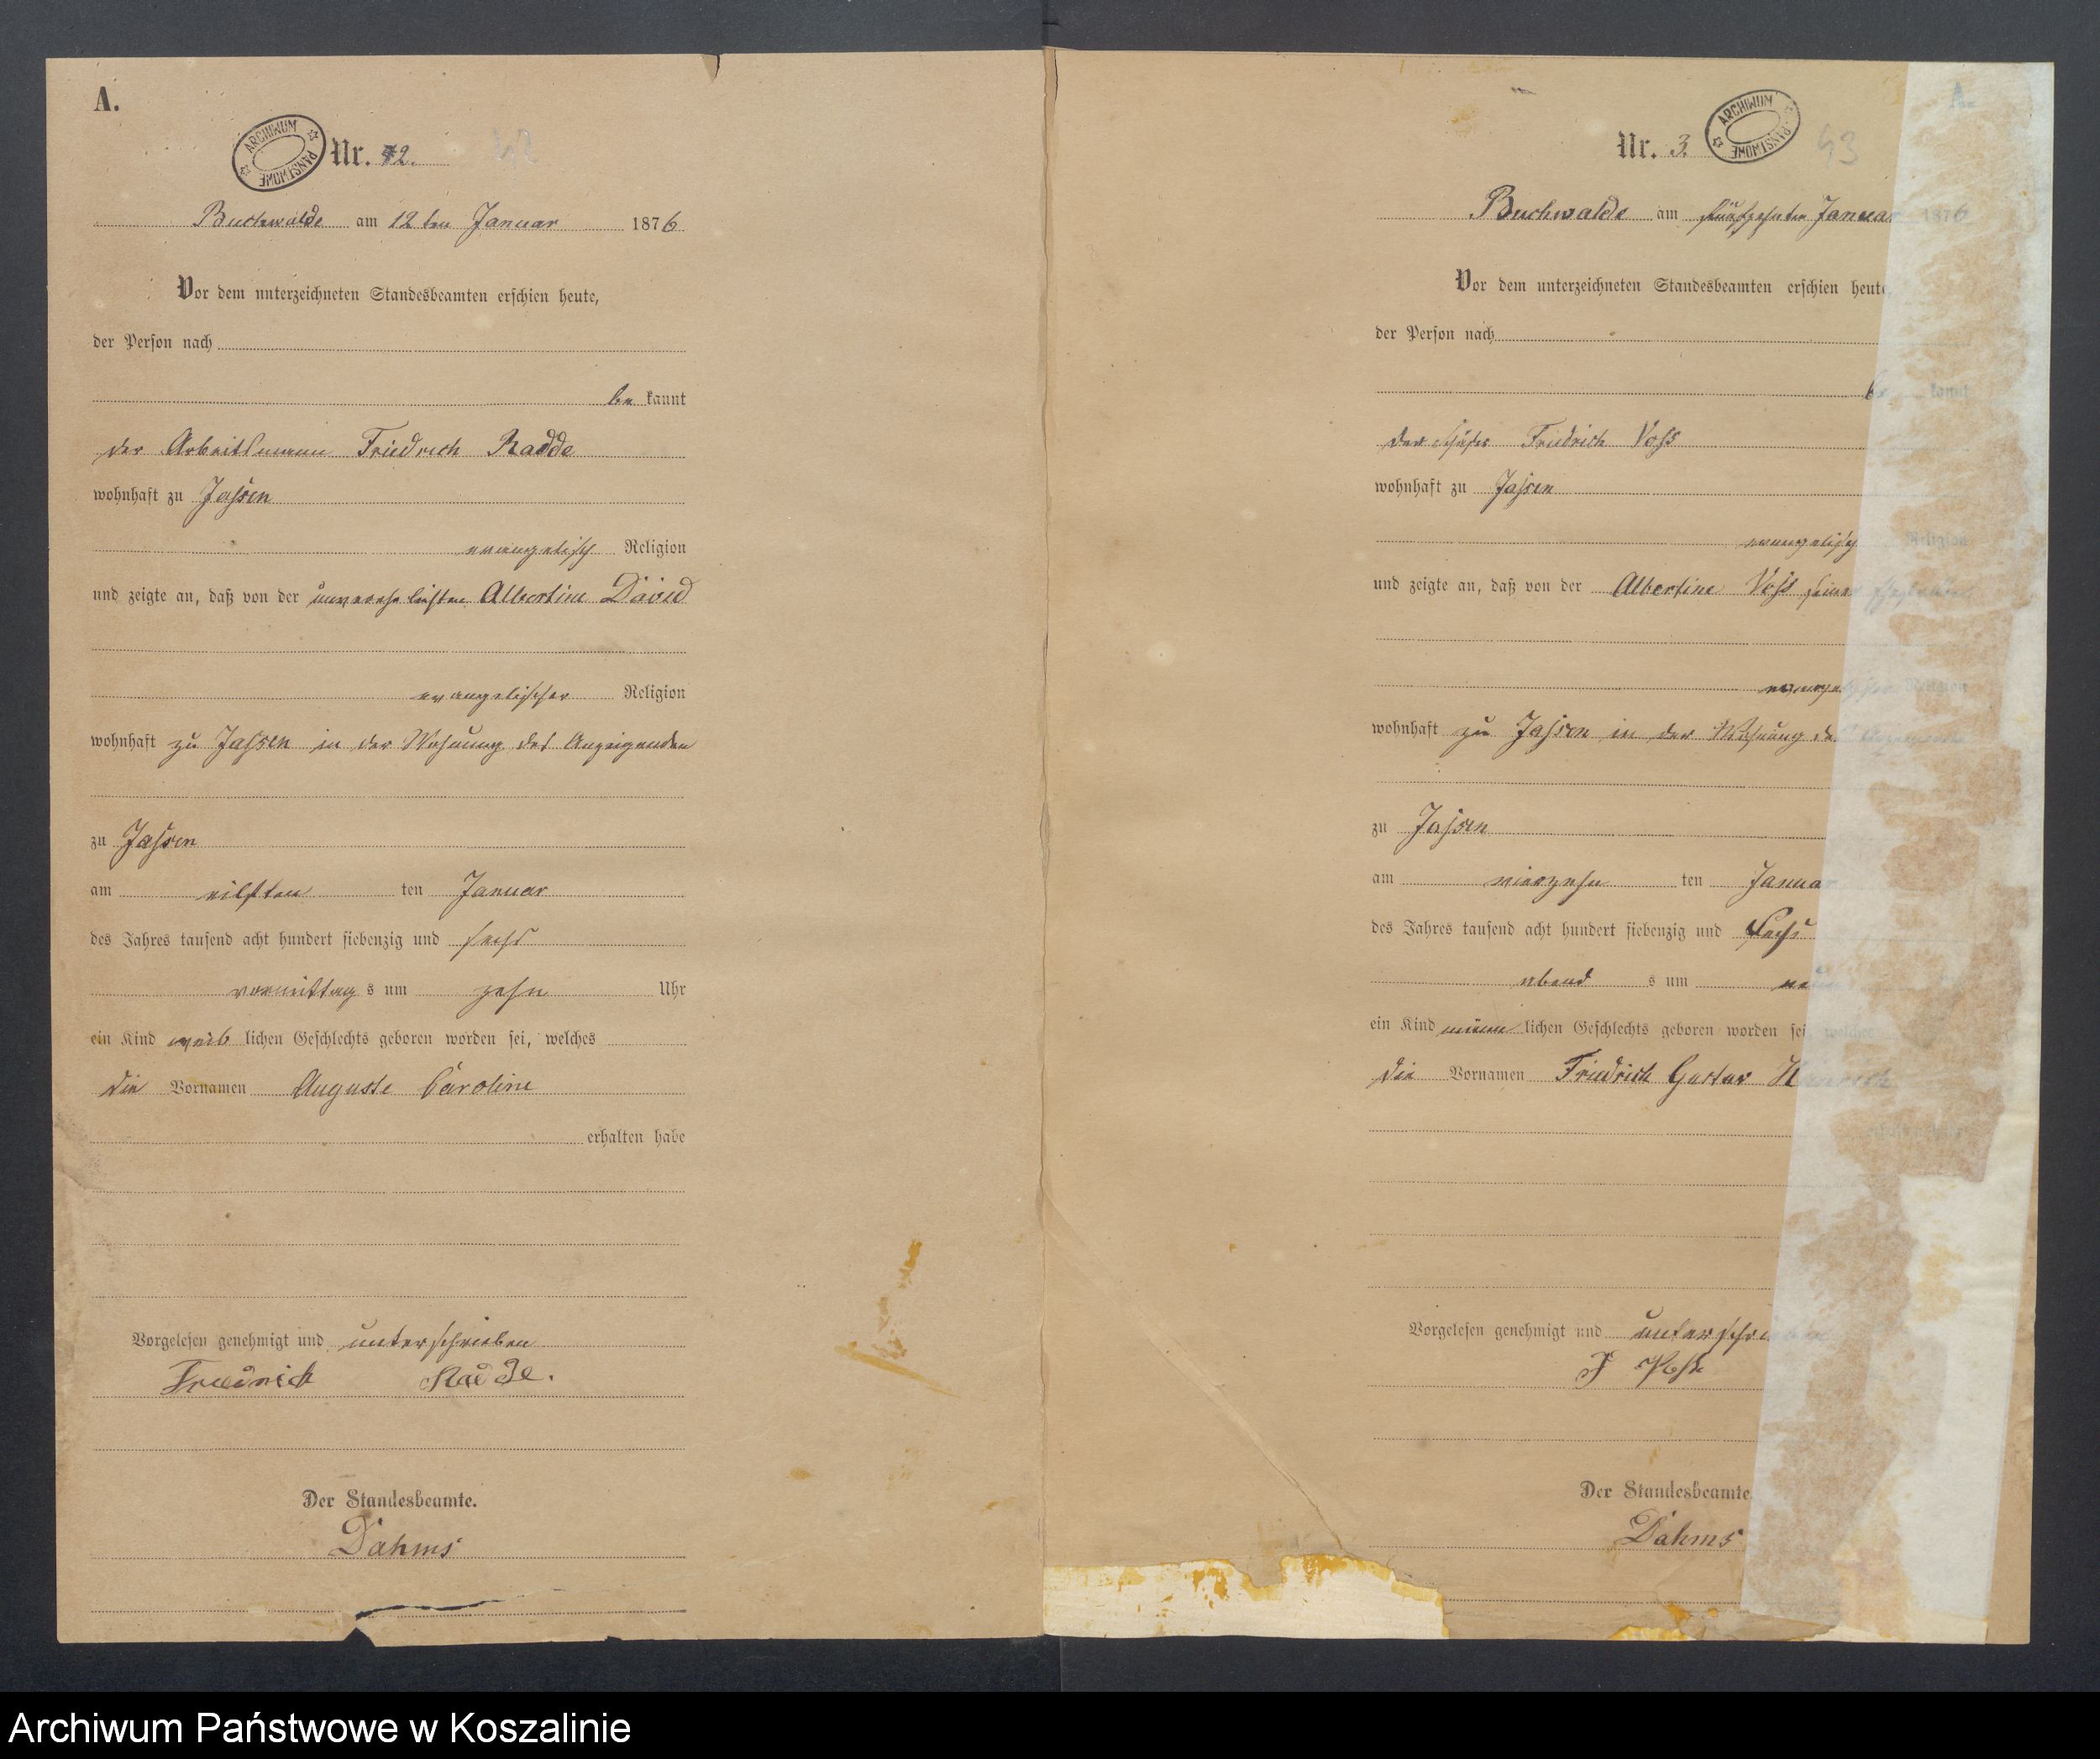 A.
ARCHIWUM PAŃSTWOWE
Nr. 2. 42
Buchwalde am 12ten Januar 1876
Vor dem unterzeichneten Standesbeamten erschien heute,
der Person nach
be kannt
der Arbeitsmann Friedrich Radde
wohnhaft zu Jassen
evangelisch Religion
und zeigte an, daß von der unverehelichten Albertine David
evangelischer Religion
wohnhaft zu Jassen in der Wohnung des Anzeigenden
zu Jassen
am eilften ten Januar
des Jahres tausend acht hundert siebenzig und sechs
vormittag s um zehn Uhr
ein Kind weib lichen Geschlechts geboren worden sei, welches
die Vornamen Auguste Caroline
erhalten habe
Vorgelesen genehmigt und unterschrieben
Friedrich Radde.
Der Standesbeamte.
Dahms
A.
Nr. 3. 43
ARCHIWUM PAŃSTWOWE
Buchwalde am fünfzehnten Januar 1876
Vor dem unterzeichneten Standesbeamten erschien heute,
der Person nach
be kannt
der Schäfer Friedrich Voss
wohnhaft zu Jassen
evangelisch Religion
und zeigte an, daß von der Albertine Voss seiner Ehefrau
evangelischer Religion
wohnhaft zu Jassen in der Wohnung des
zu Jassen
am vierzehn ten Januar
des Jahres tausend acht hundert siebenzig und Sechs
abend s um
ein Kind männ lichen Geschlechts geboren worden sei, welches
die Vornamen Friedrich Gustav Heinrich
erhalten habe
Vorgelesen genehmigt und unterschrieben
F Voss
Der Standesbeamte.
Dahms
Archiwum Państwowe w Koszalinie